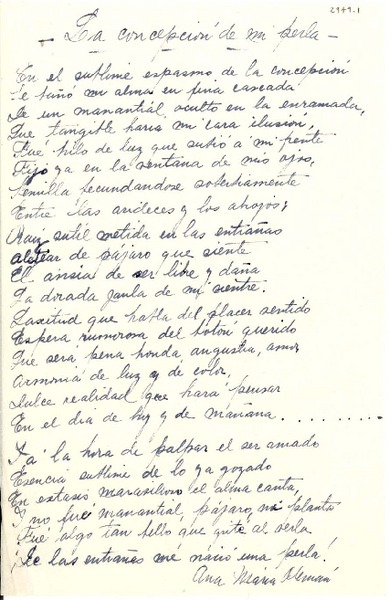 2949.1
- La concepción de mi perla -
En el sublime espasmo de la concepción
Se bañó mi alma en fina cascada
De un manantial oculto en la enramada,
Que tangible haría mi cara ilusión,
Fué hilo de luz que subió a mi frente
Fijo ya en la ventana de mis ojos,
Semilla fecundandose soberbiamente
Entre las arideces y los abrojos;
Raíz sutil metida en las entrañas
aletear de pájaro que siente
El ansia de ser libre y daña
La dorada jaula de mi vientre.
Lasitud que habla del placer sentido
Espera rumorosa del botón querido
Que será pena honda, angustia, amor
Armonía de luz y de color,
Dulce realidad que hará pensar
En el día de hoy y de mañana ..........
Ya la hora de palpar el ser amado
Esencia sublime de lo ya gozado
En extasis maravilloso el alma canta,
Y no fué manantial, pájaro, ni planta
Fué algo tan bello que grité al verla,
¡De las entrañas me nació una perla!
Ana María